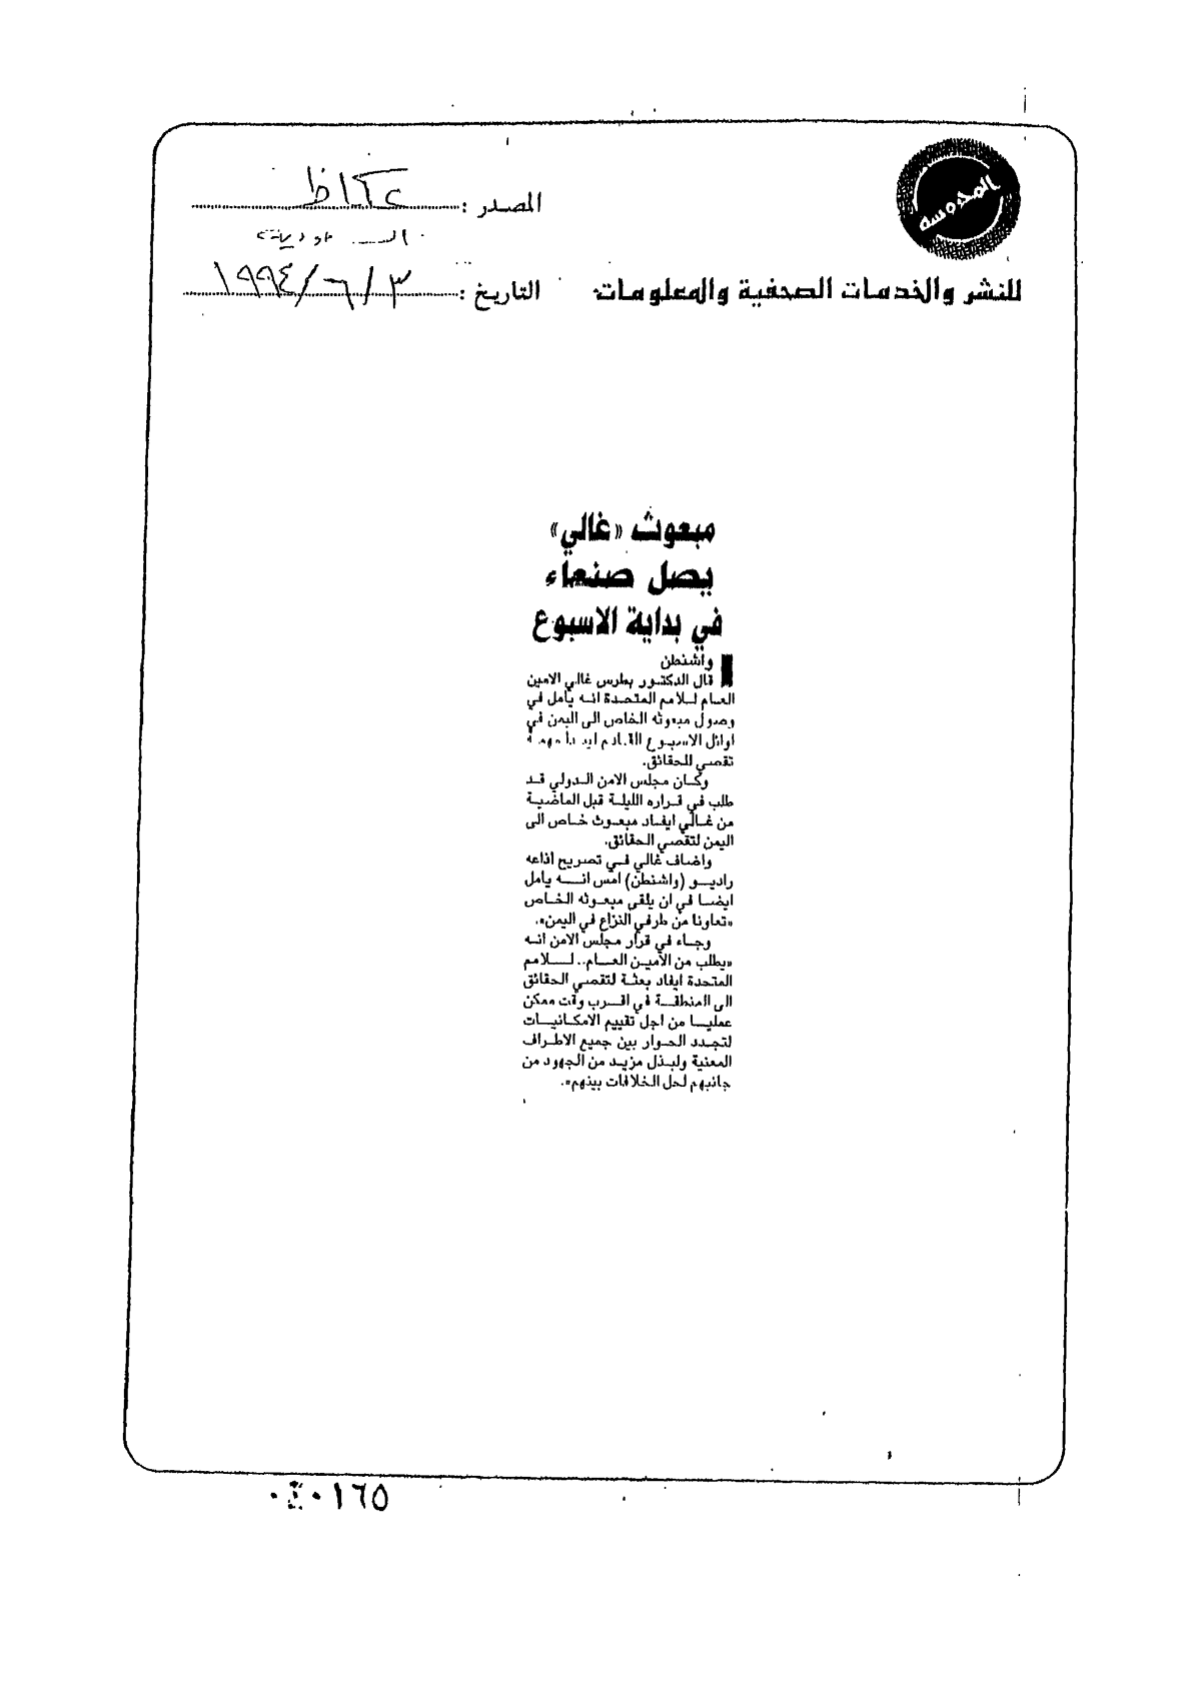 المحروسة
المصدر : عكاظ
السعودية
للنشر والخدمات الصحفية والمعلومات
التاريخ : ٣/٦/١٩٩٤
مبعوث «غالي»
يصل صنعاء
في بداية الاسبوع
واشنطن
قال الدكتور بطرس غالي الامين
العام للامم المتحدة انه يأمل في
وصول مبعوثه الخاص الى اليمن في
اوائل الاسبوع القادم ليبدأ مهمة
تقصي للحقائق.
وكان مجلس الامن الدولي قد
طلب في قراره الليلة قبل الماضية
من غالي ايفاد مبعوث خاص الى
اليمن لتقصي الحقائق.
واضاف غالي في تصريح اذاعه
راديو (واشنطن) امس انه يأمل
ايضا في ان يلقى مبعوثه الخاص
«تعاونا من طرفي النزاع في اليمن».
وجاء في قرار مجلس الامن انه
«يطلب من الأمين العام.. للامم
المتحدة ايفاد بعثة لتقصي الحقائق
الى المنطقة في اقرب وقت ممكن
عمليا من اجل تقييم الامكانيات
لتجدد الحوار بين جميع الاطراف
المعنية ولبذل مزيد من الجهود من
جانبهم لحل الخلافات بينهم».